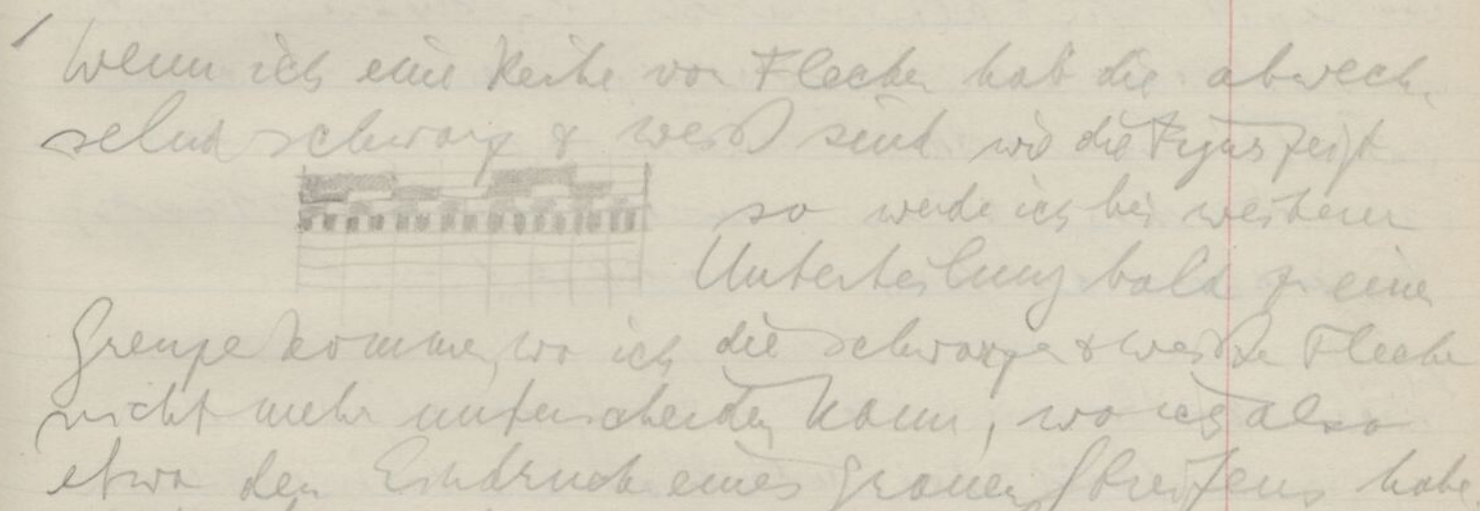 / Wenn ich eine Reihe von Flecken habe die abwech-
selnd schwarz & weiß sind wie die Figur zeigt
so werde ich bei weiterer
Unterteilung bald zu einer
Grenze kommen, wo ich die schwarzen & weißen Flecken
nicht mehr unterscheiden kann, wo ich also
etwa den Eindruck eines grauen Streifens habe.